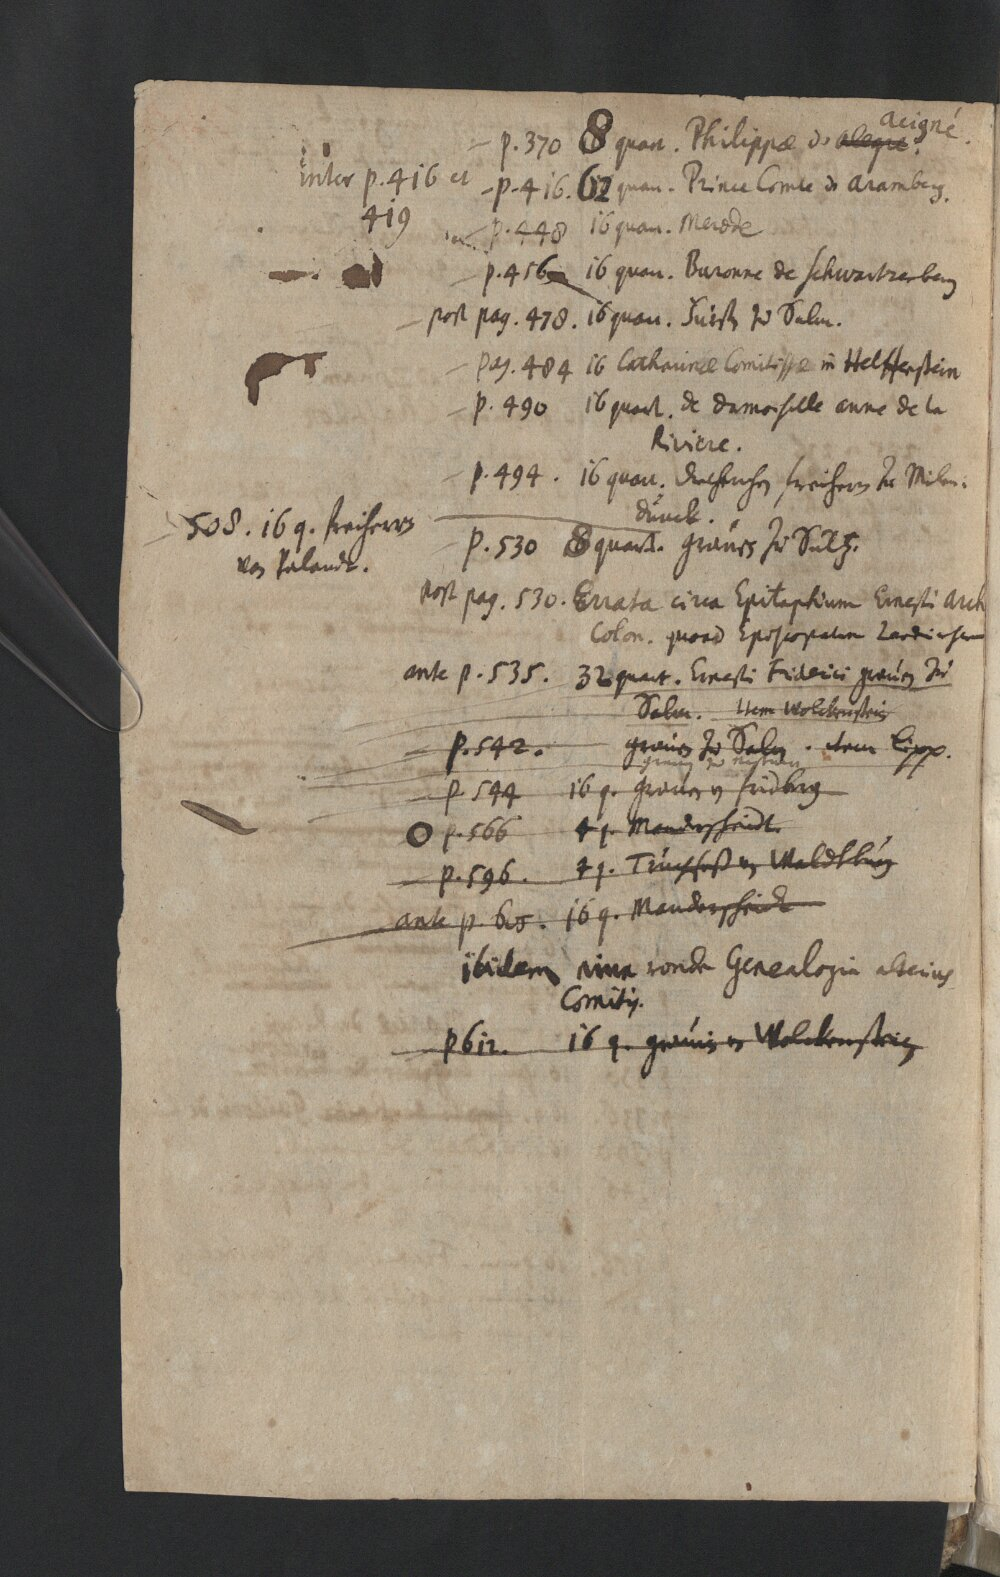 acigné.
- p. 370 8 quart. Philippæ de alegre.
inter p. 416 et - p. 416. 62 quar. Prince Comte de Aramberg.
419
p. 448 16 quar. Merode
- p. 456 16 quar. Baronne de Schwartzenberg
- post pag. 478. 16 quar. Fürst zu Salm.
- pag. 484 16 Catharinæ Comitissæ in Helffenstein
- p. 490 16 quart. de Damoiselle anne de la
Riviere.
- p. 494. 16 quar. freiherrn zu Milen-
dunck.
- 508. 16 q. freiherrn
von Palandt.
- p. 530 8 quart. graven zu Sultz.
post pag. 530. Errata circa Epitaphium Ernesti Arch
Colon. quoad Episcopatum
ante p. 535. 32 quart. Ernesti Friderici graven zu
Salm. Item Wolckenstein
- p. 542. graven zu Salm. item Lipp.
- p 544 16 q. graven
O p. 566 4 q. Manderscheidt.
- p. 596. 4 q. Truchseß von Waldtburg
ante p. 605. 16 q. Manderscheidt
ibidem eine ronde Genealogia alterius
Comitis.
p 612. 16 q. graven von Wolckenstein